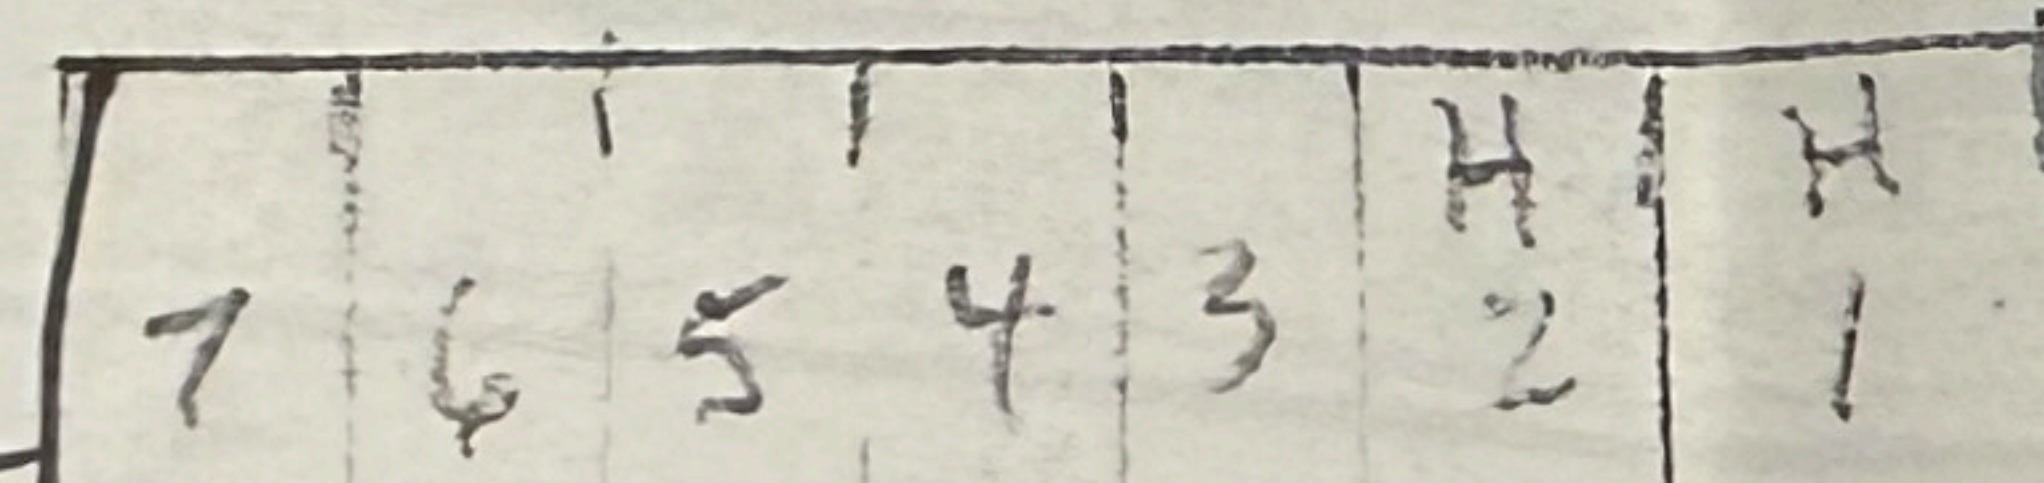 H H
7 6 5 4 3 2 1